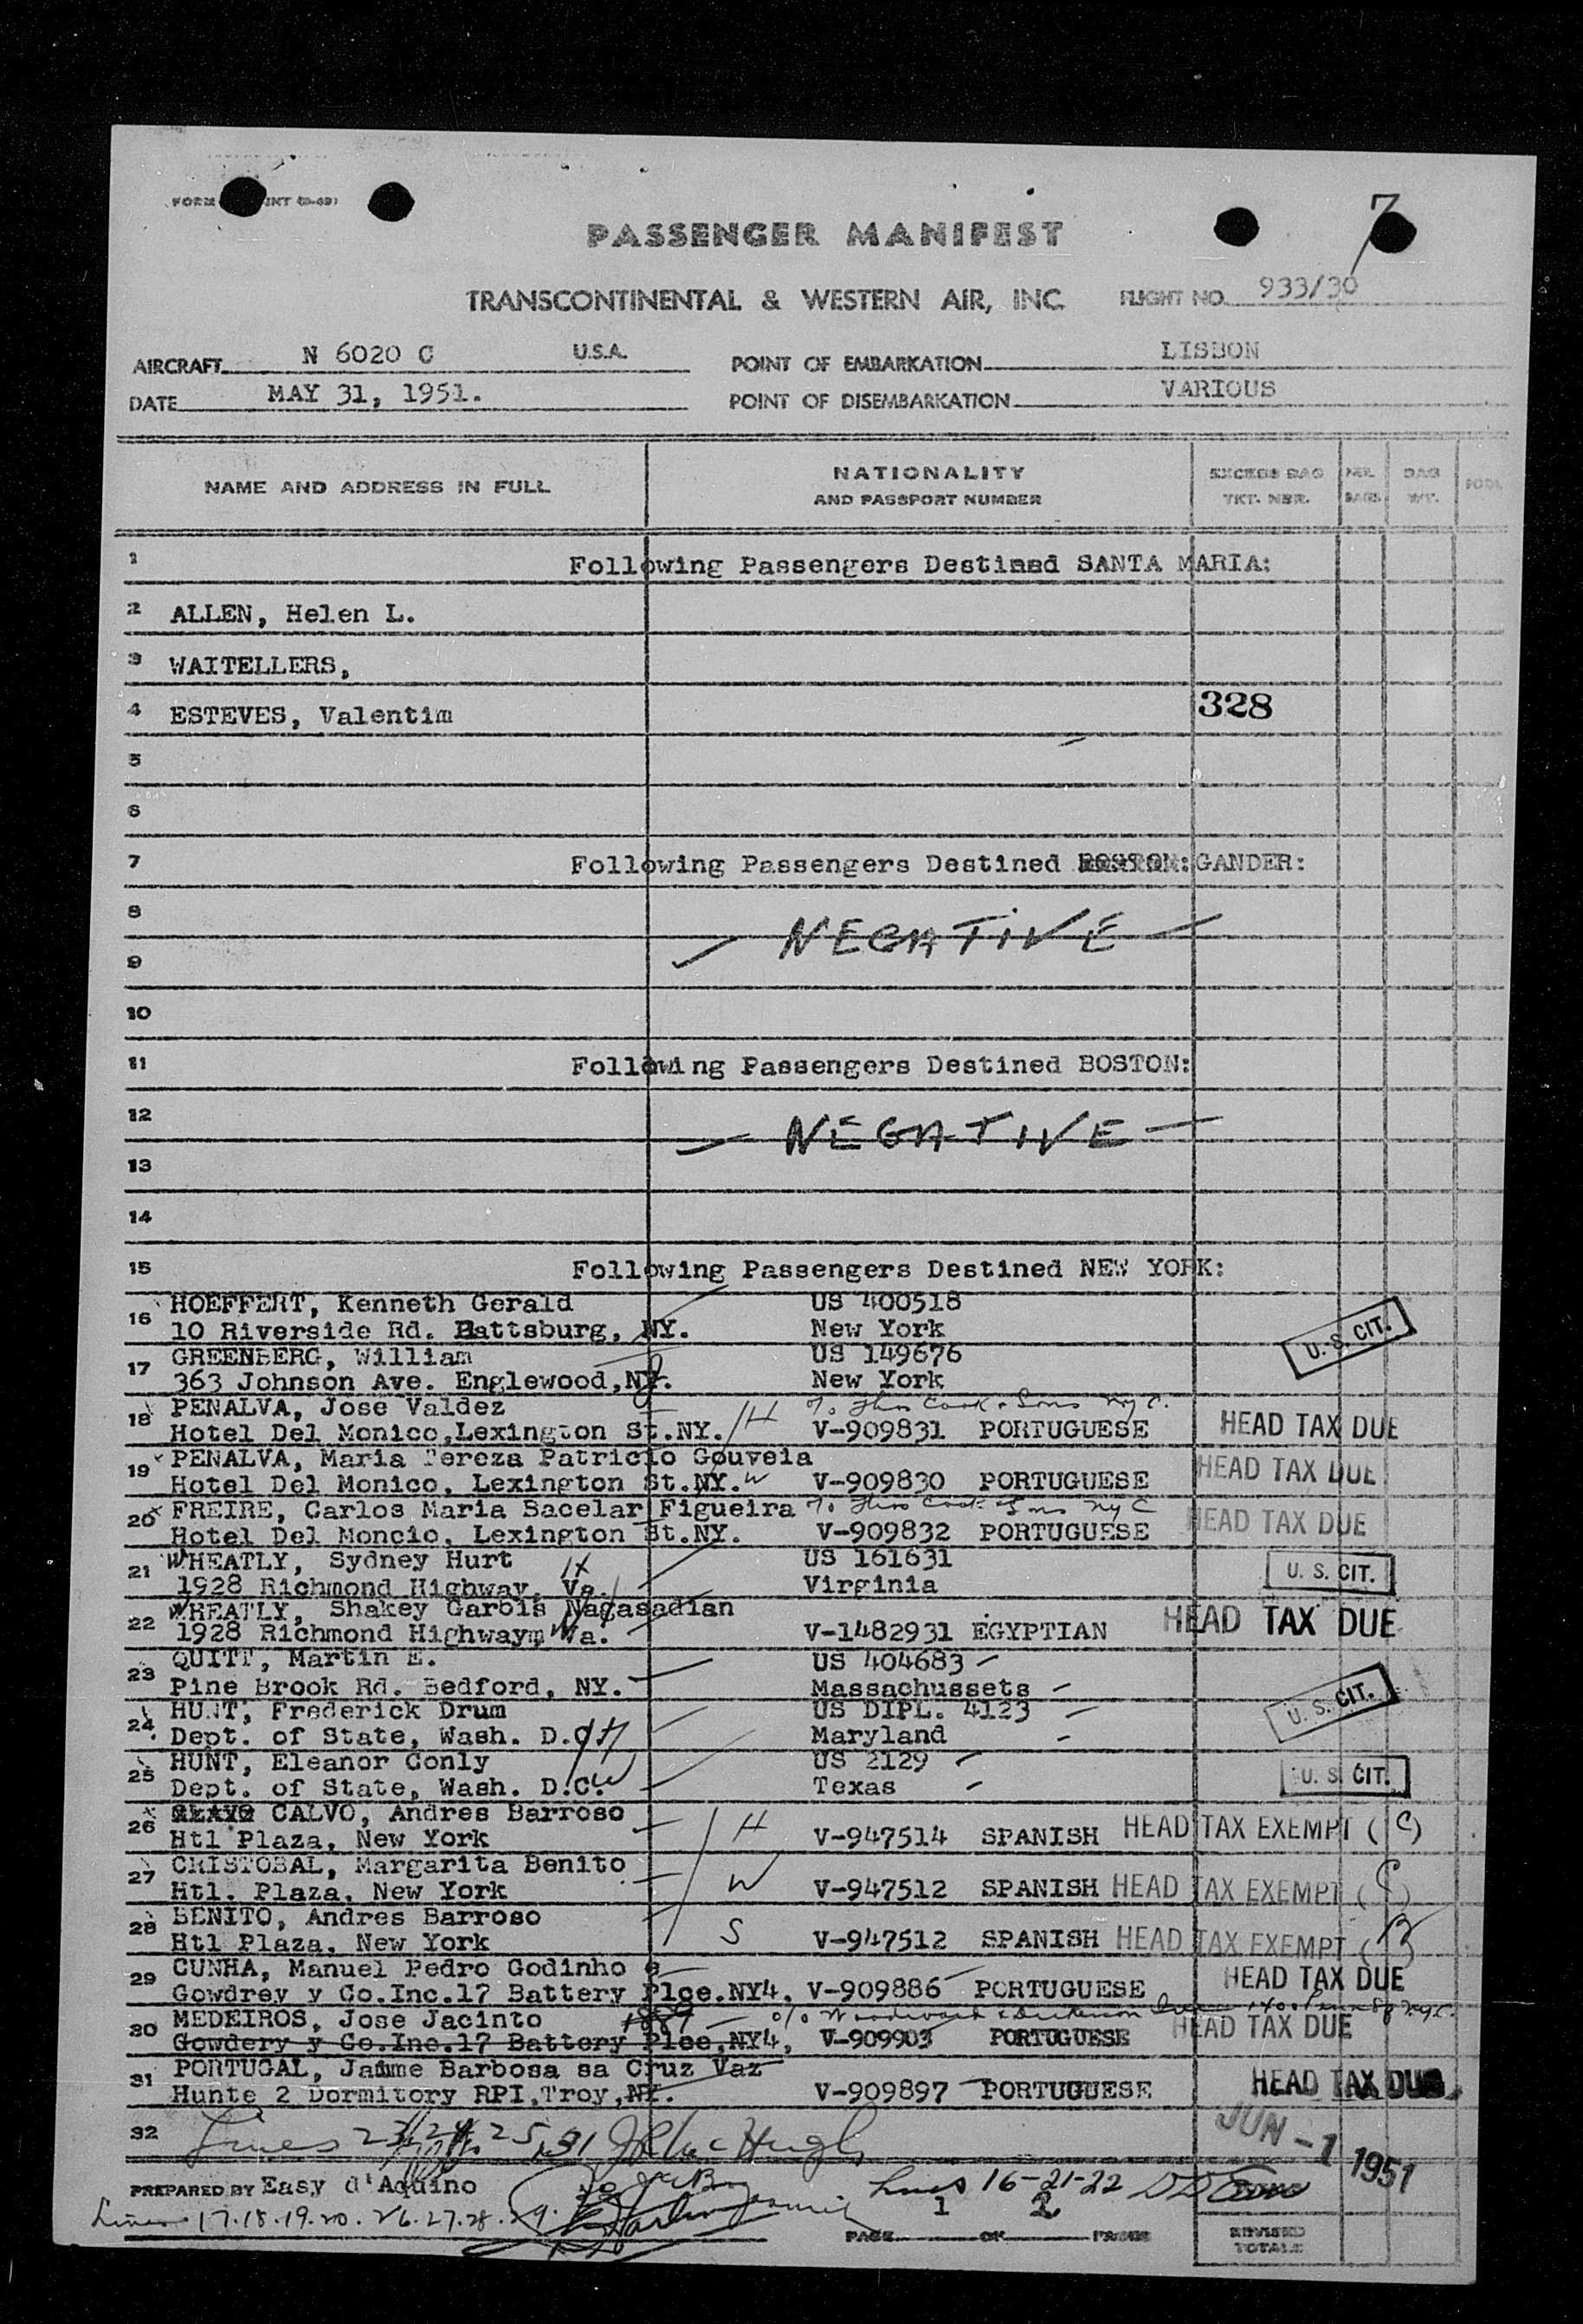 PASSENGER MANIFEST
7
TRANSCONTINENTAL & WESTERN AIR, INC. FLIGHT NO. 933/30
AIRCRAFT N 6020 C U.S.A. POINT OF EMBARKATION LISBON
DATE MAY 31, 1951. POINT OF DISEMBARKATION VARIOUS
NAME AND ADDRESS IN FULL
NATIONALITY
AND PASSPORT NUMBER
EXCESS BAG
TKT. NBR.
BAGS
WT.
1 Following Passengers Destined SANTA MARIA:
2 ALLEN, Helen L.
3 WAITELLERS,
4 ESTEVES, Valentim 328
5
6
7 Following Passengers Destined BOSTON: GANDER:
8 NEGATIVE
9
10
11 Following Passengers Destined BOSTON:
12 NEGATIVE
13
14
15 Following Passengers Destined NEW YORK:
16 HOEFFERT, Kenneth Gerald US 400518
10 Riverside Rd. Battsburg, NY. New York U. S. CIT.
17 GREENBERG, William US 149676
363 Johnson Ave. Englewood, New York
18 PENALVA, Jose Valdez % Thos Cook & Sons NYC.
Hotel Del Monico,Lexington St.NY. H V-909831 PORTUGUESE HEAD TAX DUE
19 PENALVA, Maria Tereza Patricio Gouveia
Hotel Del Monico, Lexington St.NY. W V-909830 PORTUGUESE HEAD TAX DUE
20 FREIRE, Carlos Maria Bacelar Figueira % Thos Cook & Sons NYC
Hotel Del Moncio, Lexington St.NY. V-909832 PORTUGUESE HEAD TAX DUE
21 WHEATLY, Sydney Hurt H US 161631
1928 Richmond Highway, Va. Virginia U. S. CIT.
22 WHEATLY, Shakey Garbis Nagasadian
1928 Richmond Highwaym Va. W V-1482931 EGYPTIAN HEAD TAX DUE
23 QUITT, Martin E. US 404683
Pine Brook Rd. Bedford, NY. Massachussets
24 HUNT, Frederick Drum US DIPL. 4123 U. S. CIT.
Dept. of State, Wash. D.C. H Maryland
25 HUNT, Eleanor Conly US 2129
Dept. of State, Wash. D.C. W Texas U. S. CIT.
26 CALVO, Andres Barroso
Htl Plaza, New York H V-947514 SPANISH HEAD TAX EXEMPT (C)
27 CRISTOBAL, Margarita Benito
Htl. Plaza, New York W V-947512 SPANISH HEAD TAX EXEMPT (C)
28 BENITO, Andres Barroso
Htl Plaza, New York S V-947512 SPANISH HEAD TAX EXEMPT (B)
29 CUNHA, Manuel Pedro Godinho e
Gowdrey y Co.Inc.17 Battery Plce.NY4, V-909886 PORTUGUESE HEAD TAX DUE
30 MEDEIROS, Jose Jacinto
Gowdery y Co.Inc.17 Battery Plce,NY4, V-909903 PORTUGUESE HEAD TAX DUE
31 PORTUGAL, Jaime Barbosa sa Cruz Vaz
Hunte 2 Dormitory RPI,Troy,NY. V-909897 PORTUGUESE HEAD TAX DUE
32 Lines 23, 24, 25, 31
JUN -1 1951
PREPARED BY Easy d'Aquino Lines 16-21-22
Lines 17.18.19.20.26.27.28.29.
PAGE 1 OF 2 PAGES
REVISED
TOTALS